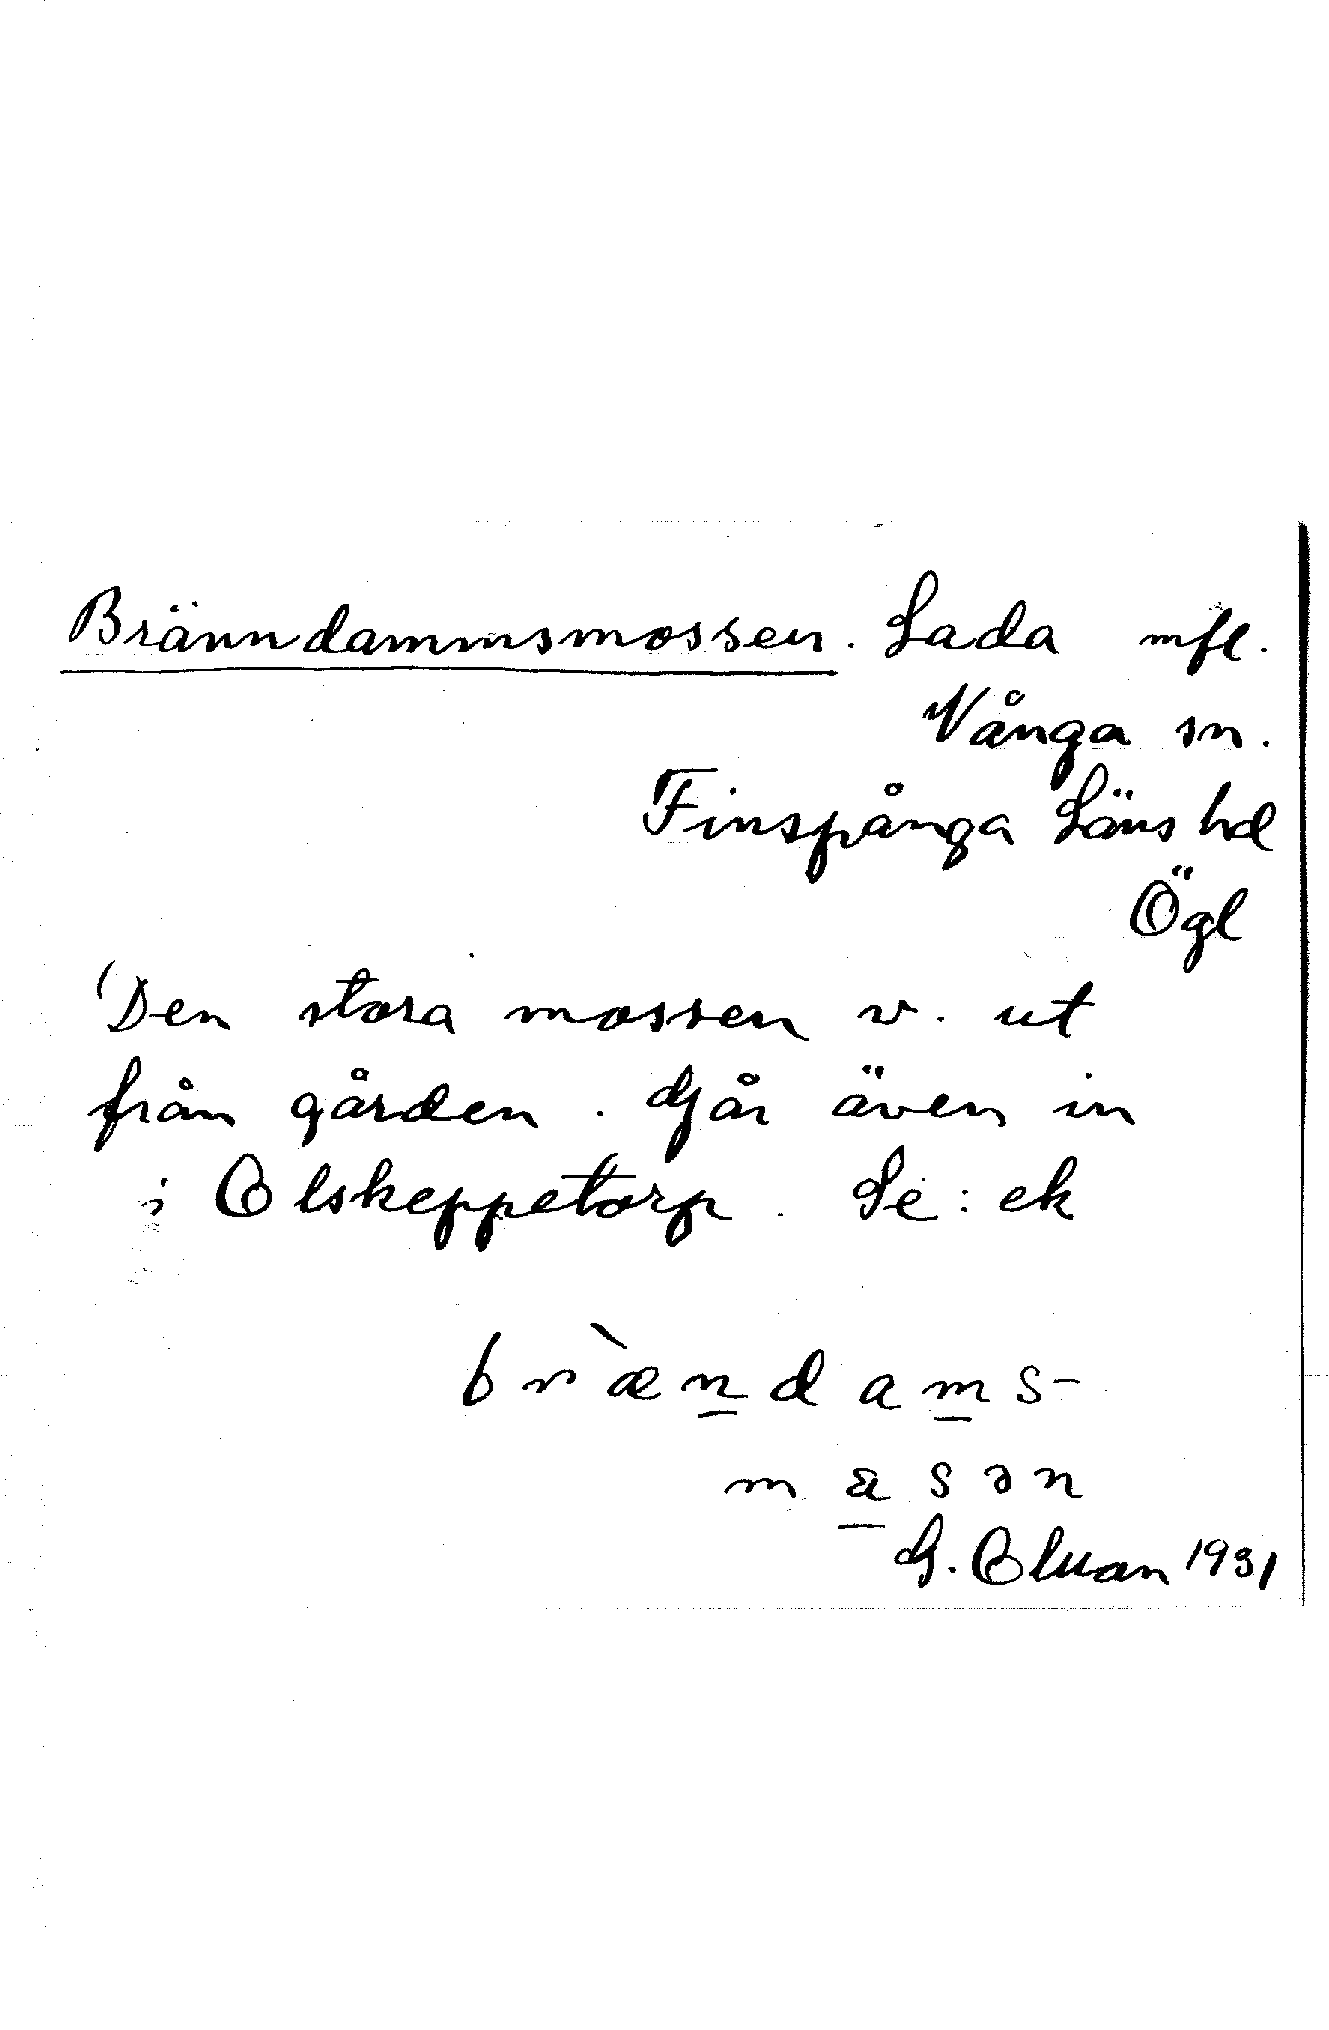 Bränndammsmossen. Lada mfl.
Vånga sn.
Finspånga Läns hd
Ögl
Den stora mossen v. ut
från gården. Går även in
i Olskeppetorp. Se: ek
brændams-
masən
G. 1931